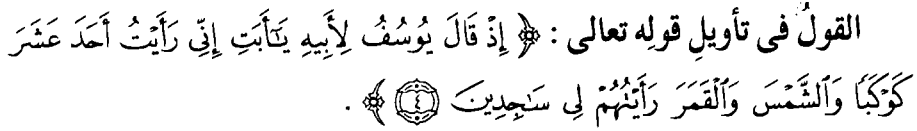 القولُ فى تأويلِ قولِه تعالى : ﴿ إِذْ قَالَ يُوسُفُ لِأَبِيهِ يَٰٓأَبَتِ إِنِّى رَأَيْتُ أَحَدَ عَشَرَ
كَوْكَبًا وَٱلشَّمْسَ وَٱلْقَمَرَ رَأَيْتُهُمْ لِى سَٰجِدِينَ ۝٤ ﴾ .